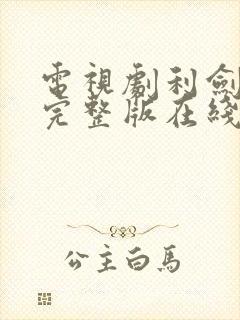 電視劇利劍
完整版在綫
公主白馬